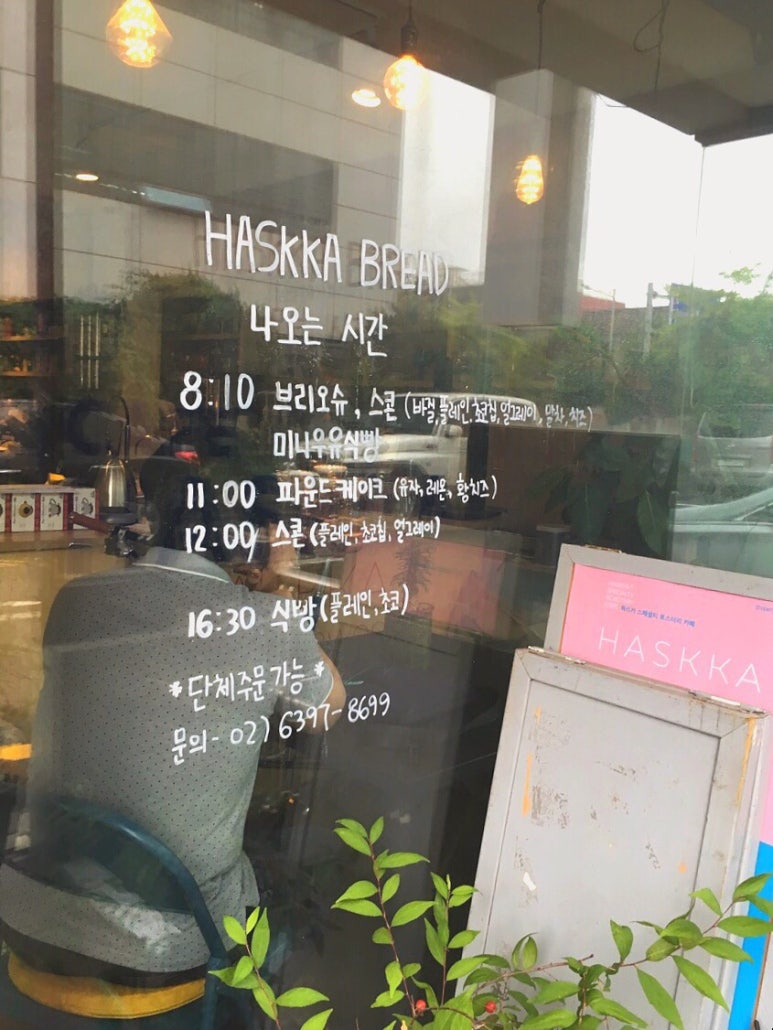 HASKKA BREAD
나오는 시간
8:10 브리오슈, 스콘 (바질, 플레인, 초코칩, 얼그레이, 말차, 치즈)
미니우유식빵
11:00 파운드케이크 (유자, 레몬, 황치즈)
12:00 스콘 (플레인, 초코칩, 얼그레이)
16:30 식빵 (플레인, 초코)
*단체주문 가능*
문의 - 02) 6397-8699
하스카 스페셜티 로스터리 카페
HASKKA